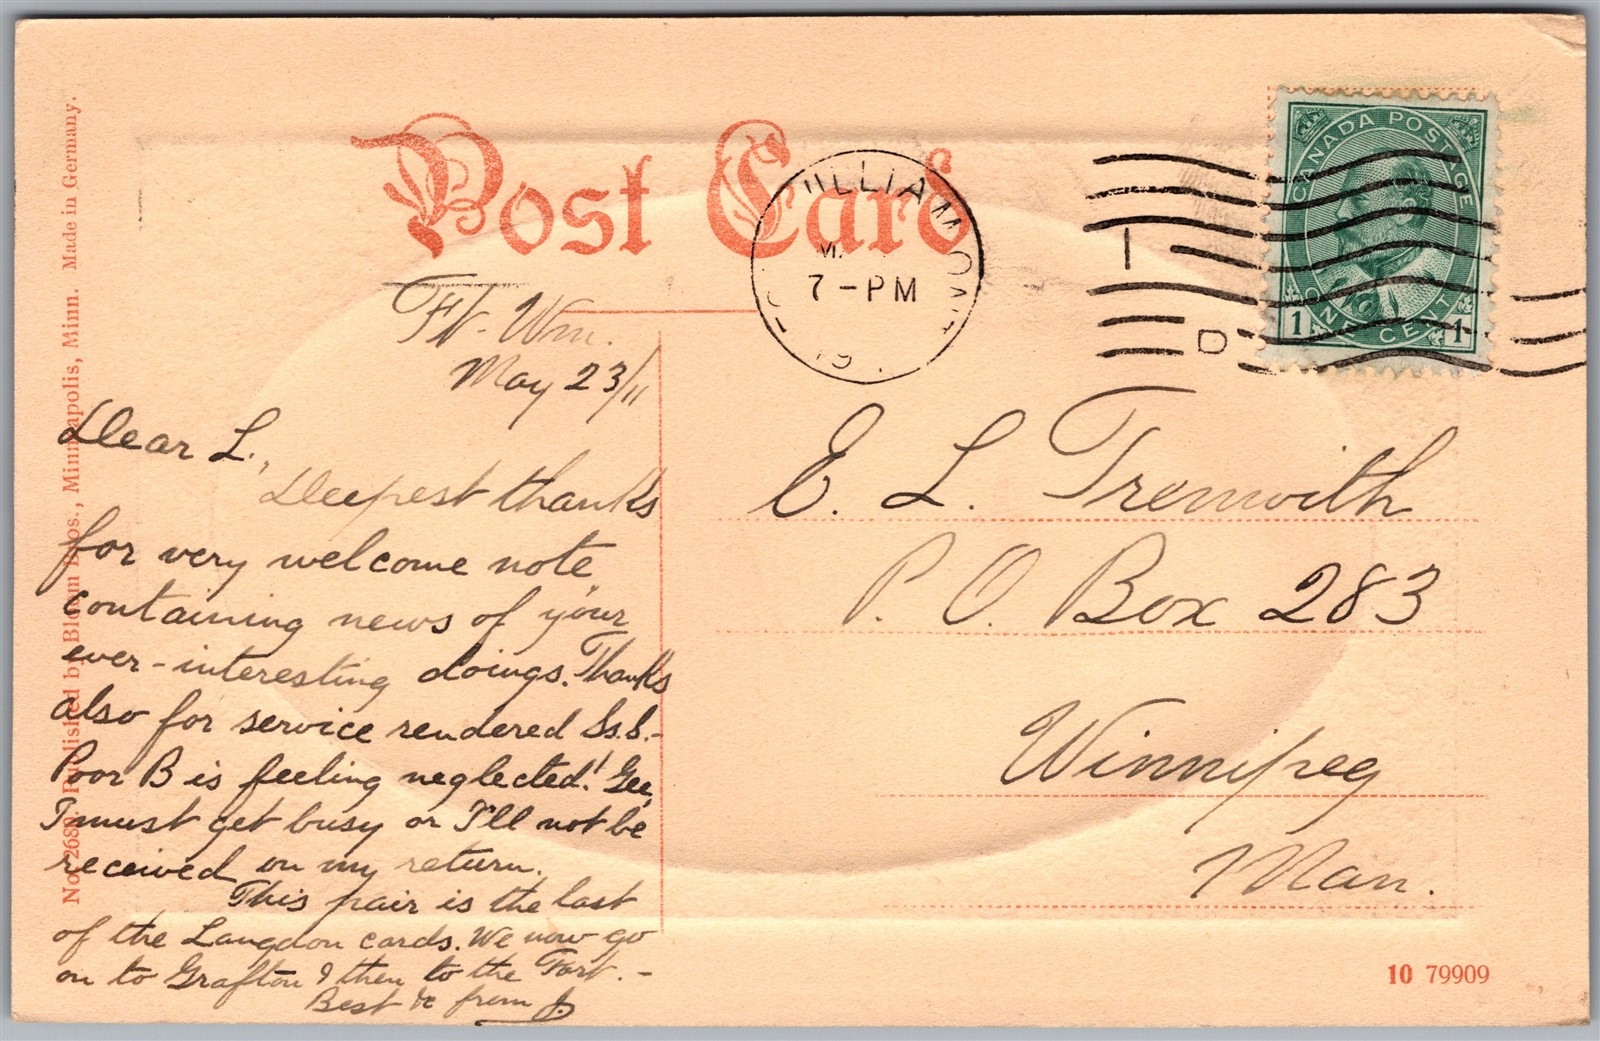 Post Card
No. 2689. Published by Bloom Bros., Minneapolis, Minn. Made in Germany.
ILLIAM ONT
M
7-PM
19
I
D
CANADA POSTAGE
1 ONE CENT 1
Ft. Wm.
May 23/11
Dear L.,
Deepest thanks
for very welcome note
containing news of your
ever-interesting doings. Thanks
also for service rendered Ss.S.-
Poor B is feeling neglected! Gee,
I must get busy or I'll not be
received on my return.
This pair is the last
of the Langdon cards. We now go
on to Grafton & then to the Fort. -
Best &c from J.
E. L. Tremwith
P. O. Box 283
Winnipeg
Man.
10 79909